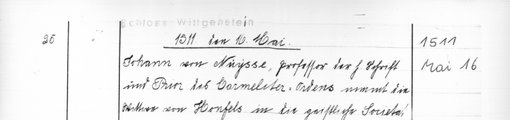 Schloss Wittgenstein
26 1511 den 16. Mai. 1511
Johann von Nuysse, Professor der h. Schrift Mai 16
und Prior des Carmeliter-Ordens nimmt die
von Honfels in die geistliche Societä